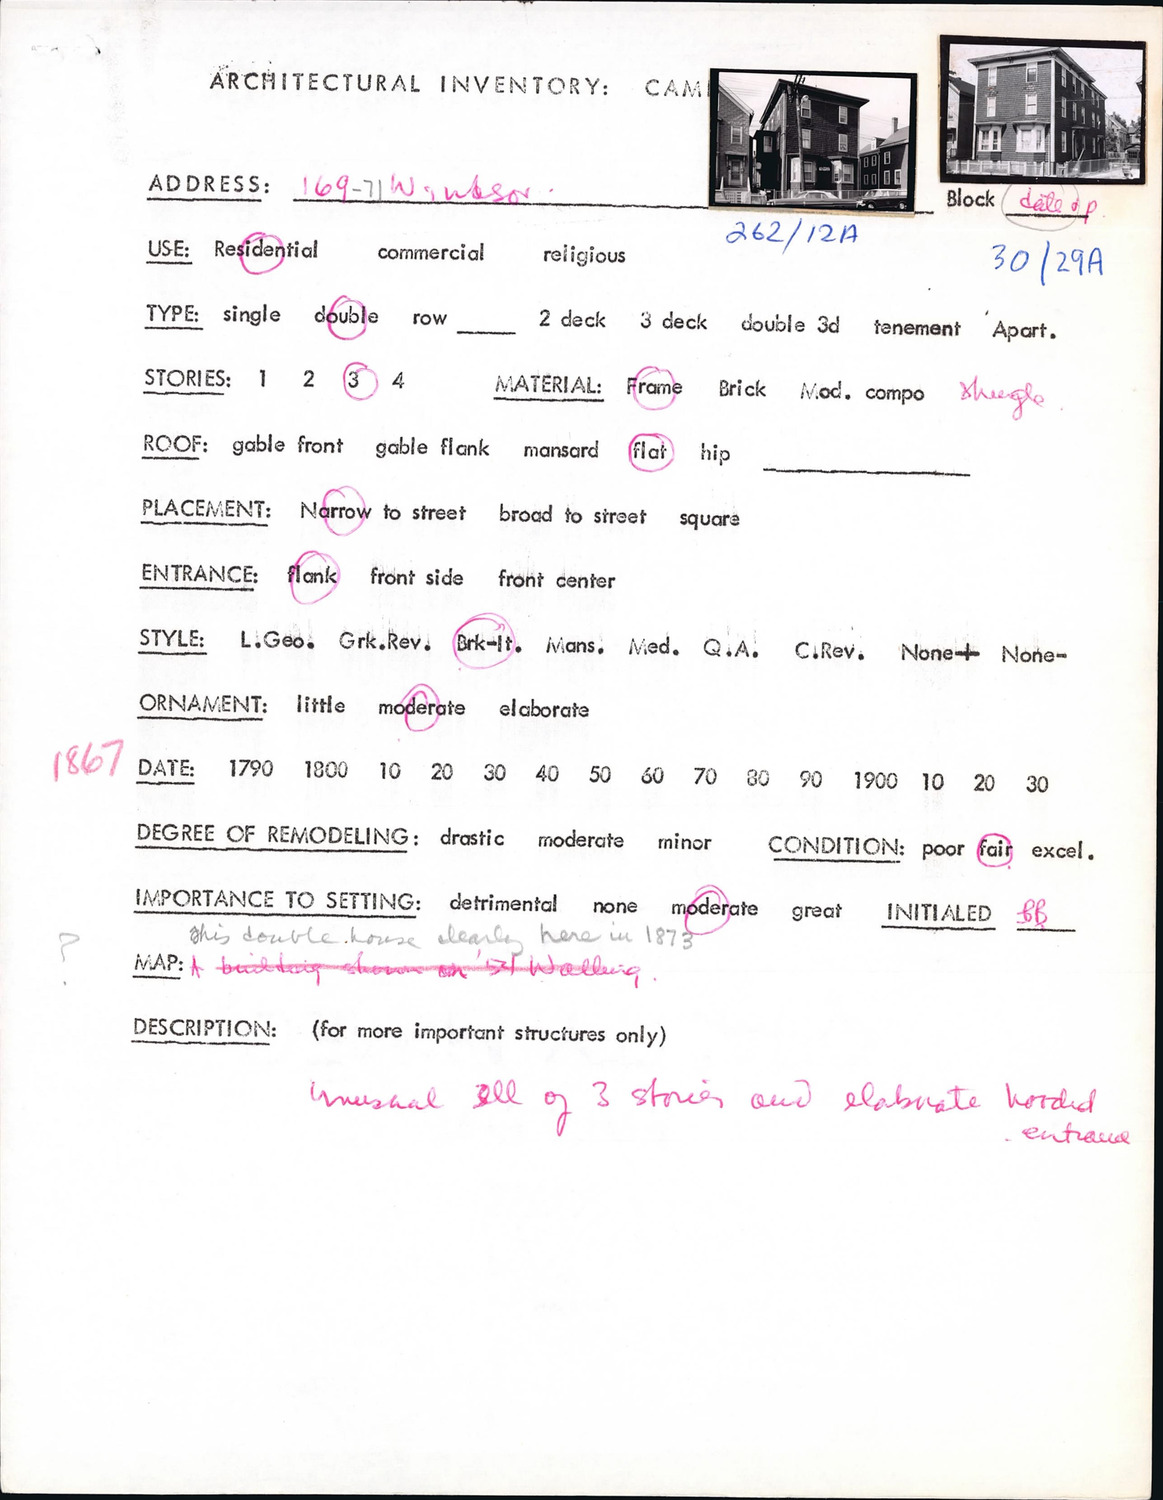 ARCHITECTURAL INVENTORY: CAM
ADDRESS: 169-71 Windsor.
Block date & p.
262/12A
30/29A
USE: Residential commercial religious
TYPE: single double row ____ 2 deck 3 deck double 3d tenement Apart.
STORIES: 1 2 3 4 MATERIAL: Frame Brick Mod. compo shingle
ROOF: gable front gable flank mansard flat hip ____
PLACEMENT: Narrow to street broad to street square
ENTRANCE: flank front side front center
STYLE: L.Geo. Grk.Rev. Brk-It. Mans. Med. Q.A. C.Rev. None+ None-
ORNAMENT: little moderate elaborate
1867 DATE: 1790 1800 10 20 30 40 50 60 70 80 90 1900 10 20 30
DEGREE OF REMODELING: drastic moderate minor CONDITION: poor fair excel.
IMPORTANCE TO SETTING: detrimental none moderate great INITIALED BB
This double house clearly here in 1873
? MAP: A building shown on '54 Walling.
DESCRIPTION: (for more important structures only)
Unusual ell of 3 stories and elaborate hooded
entrance